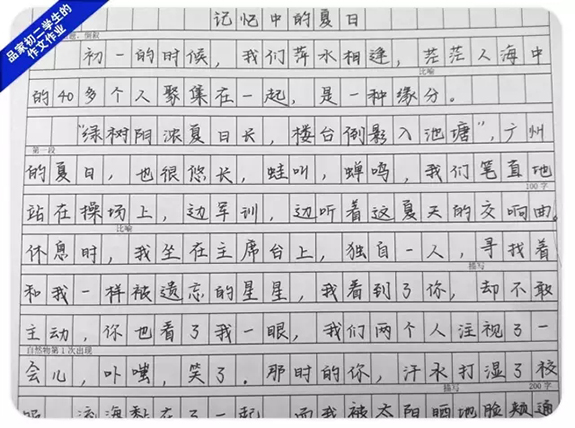 品家初二学生的
作文作业
记忆中的夏日
倒叙
初一的时候，我们萍水相逢，茫茫人海中
比喻
的40多个人聚集在一起，是一种缘分。
"绿树阴浓夏日长，楼台倒影入池塘"，广州
第一段
的夏日，也很悠长，蛙叫，蝉鸣，我们笔直地
100字
站在操场上，边军训，边听着这夏天的交响曲。
比喻
休息时，我坐在主席台上，独自一人，寻找着
描写
和我一样被遗忘的星星，我看到了你，却不敢
主动，你也看了我一眼，我们两个人注视了一
自然物第1次出现
会儿，卟嗤，笑了。那时的你，汗水打湿了校
描写
200字
服，流海黏在了一起，而我被太阳晒地脸颊通